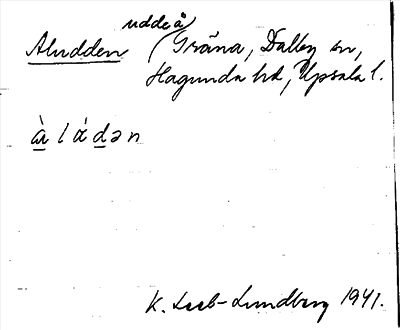 udde å
Aludden (Gräna, Dalby sn,
Hagunda hd, Upsala l.
à l á d ə n
K. Leeb-Lundberg 1941.